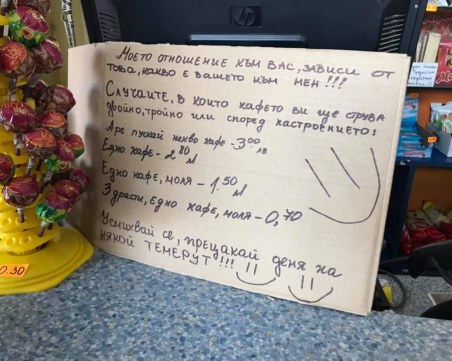 hp
Моето отношение към вас, зависи от
това, какво е вашето към мен!!!
Случаите, в които кафето ви ще струва
двойно, тройно или според настроението:
Аре пускай некво кафе - 3 00 лв
Едно кафе - 2 80 л
Едно кафе, моля - 1.50 л
Здрасти, едно кафе, моля - 0,70
Усмихвай се, прецакай деня на
някой темерут!!!
0.30